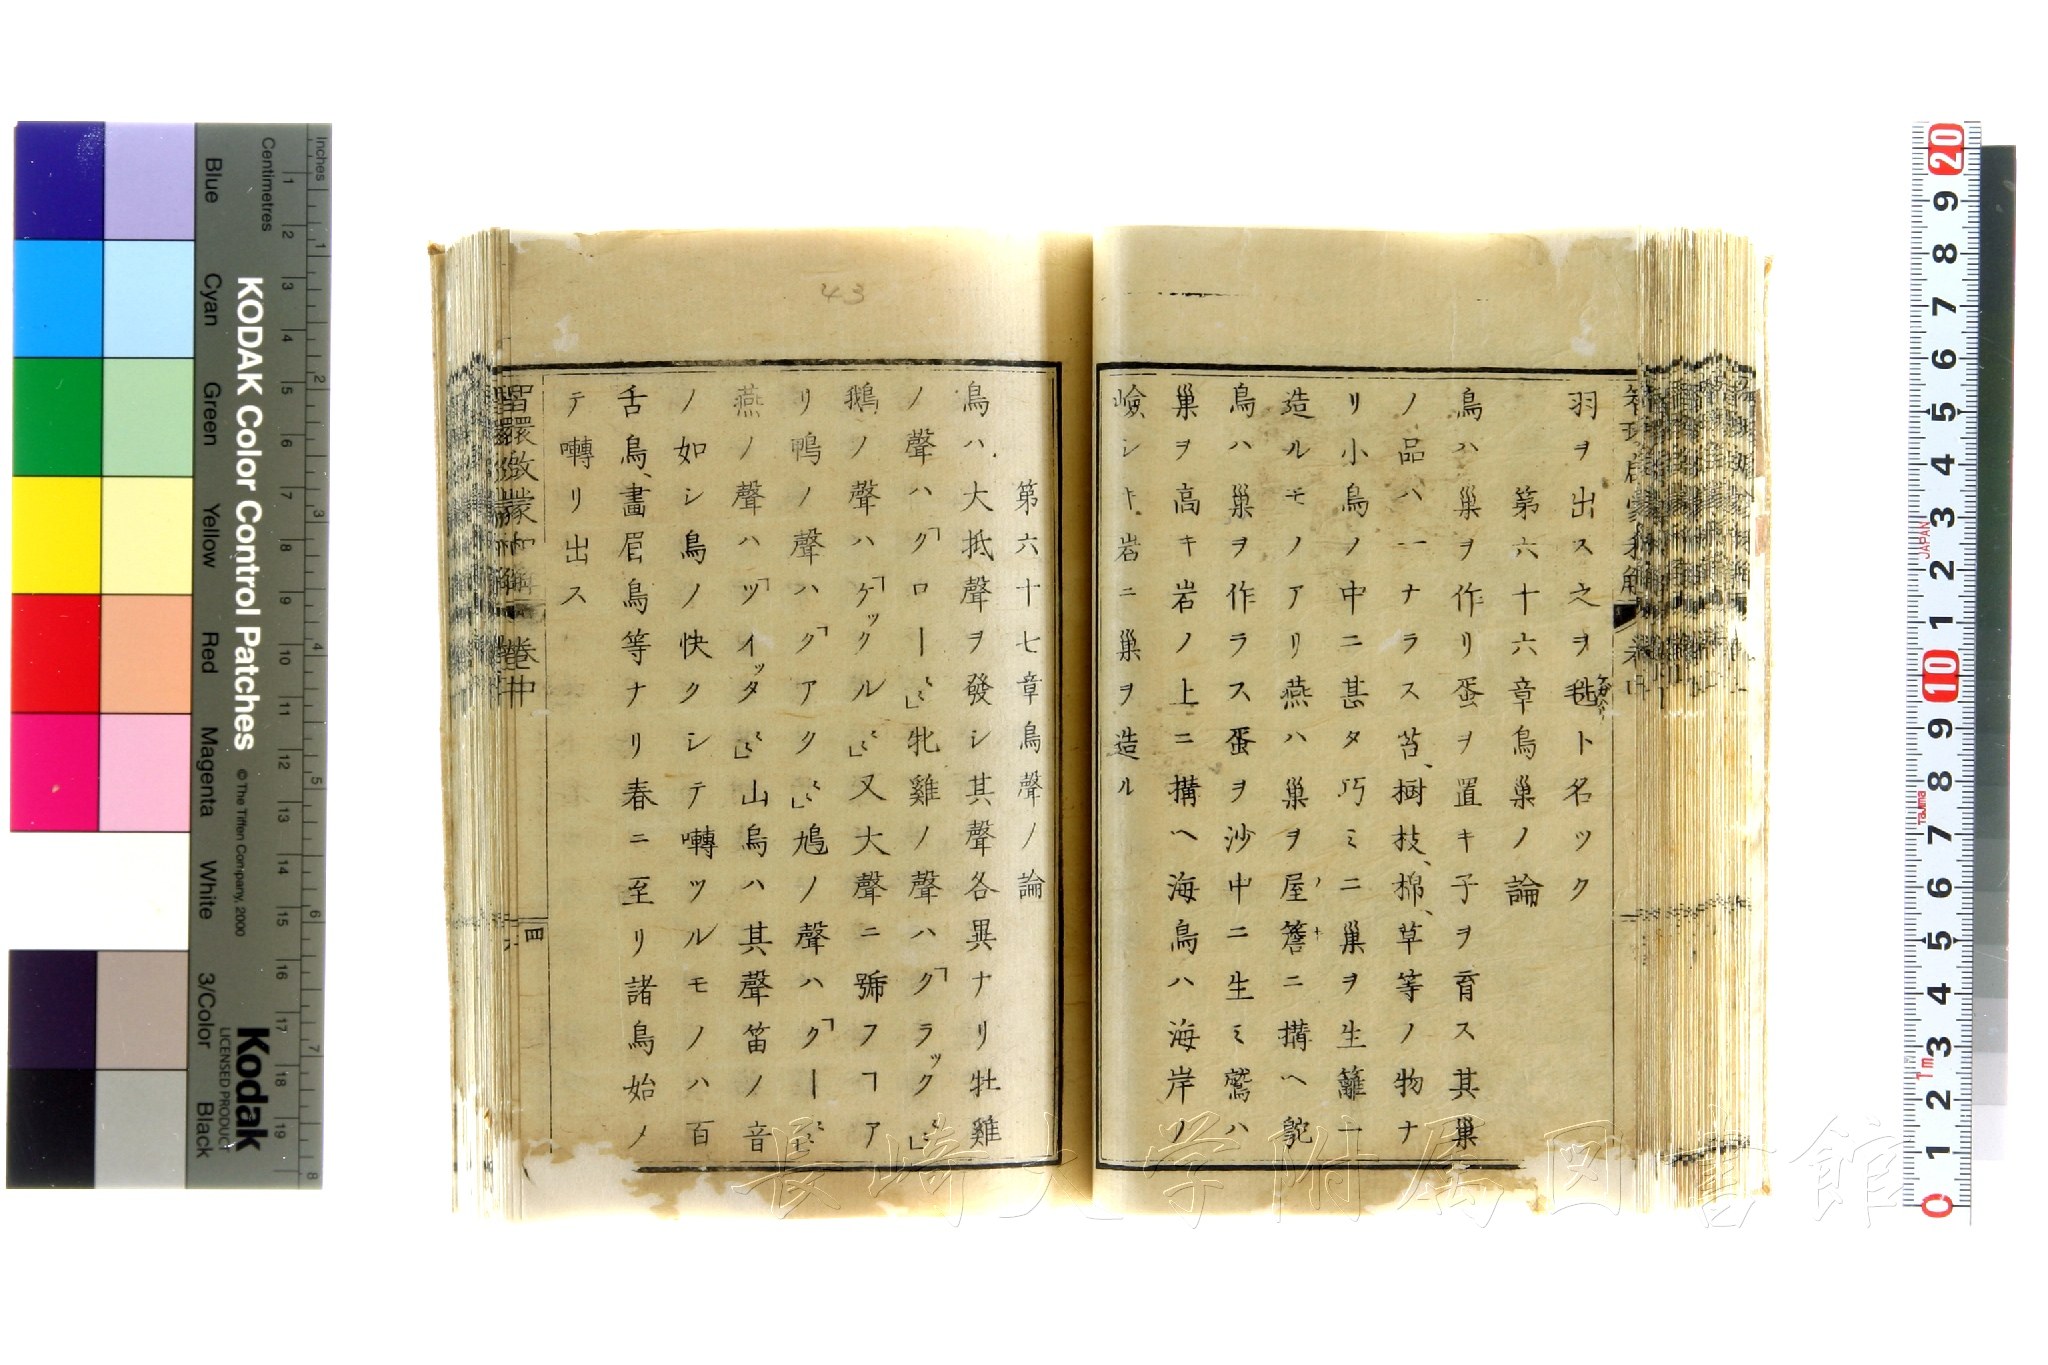 羽ヲ出ス之ヲ毨ト名ツク
第六十六章鳥巢ノ論
鳥ハ巢ヲ作リ蛋ヲ置キ子ヲ育ス其巢
ノ品ハ一ナラス苔、樹枝、棉、草等ノ物ナ
リ小鳥ノ中ニ甚タ巧ミニ巢ヲ生籬ニ
造ルモノアリ燕ハ巢ヲ屋簷ニ搆ヘ鴕
鳥ハ巢ヲ作ラス蛋ヲ沙中ニ生ミ鷲ハ
巢ヲ高キ岩ノ上ニ搆ヘ海鳥ハ海岸ノ
嶮シキ岩ニ巢ヲ造ル
第六十七章鳥聲ノ論
鳥ハ大抵聲ヲ發シ其聲各異ナリ牡雞
ノ聲ハ「クロー〱」牝雞ノ聲ハ「クラック〱」
鵝ノ聲ハ「ゲックル〱」又大聲ニ號フヿア
リ鴨ノ聲ハ「クアク〱」鳩ノ聲ハ「クー〱」
燕ノ聲ハ「ツイッタ〱」山烏ハ其聲笛ノ音
ノ如シ鳥ノ快クシテ囀ツルモノハ百
舌鳥、畫眉鳥等ナリ春ニ至リ諸鳥始ノ
テ囀リ出ス
智環啟蒙和解 卷中
四
43
長崎大学附属図書館
KODAK Color Control Patches
© The Tiffen Company, 2000
Kodak
LICENSED PRODUCT
Inches
Centimetres
Blue
Cyan
Green
Yellow
Red
Magenta
White
3/Color
Black
1 2 3 4 5 6 7 8 9 10 11 12 13 14 15 16 17 18 19
1 2 3 4 5 6 7 8
20 9 8 7 6 5 4 3 2 1 10 9 8 7 6 5 4 3 2 1 0
JAPAN
Tajima
Tm